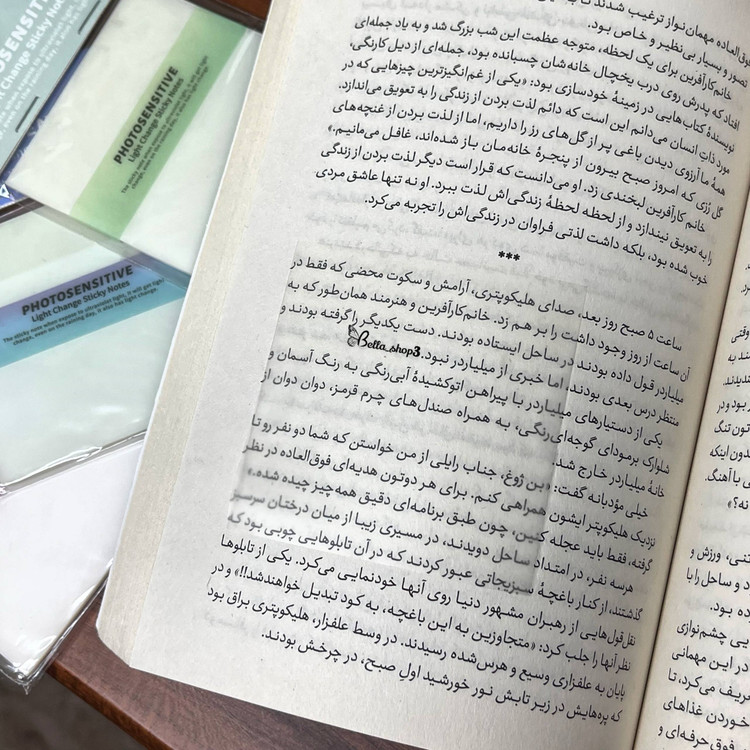 PHOTOSENSITIVE
Light Change Sticky Notes
PHOTOSENSITIVE
Light Change Sticky Notes
The sticky note when expose to ultraviolet light, it will get light
change, even on the raining day, it also has light change.
فوق‌العاده مهمان‌نواز ترغیب شدند تا
تصور و بسیار بی‌نظیر و خاص بود.
خانم کارآفرین برای یک لحظه، متوجه عظمت این شب بزرگ شد و به یاد جمله‌ای
افتاد که پدرش روی درب یخچال خانه‌شان چسبانده بود، جمله‌ای از دیل کارنگی،
نویسندهٔ کتاب‌هایی در زمینهٔ خودسازی بود: «یکی از غم‌انگیزترین چیزهایی که در
مورد ذات انسان می‌دانم این است که دائم لذت بردن از زندگی را به تعویق می‌اندازد.
همهٔ ما آرزوی دیدن باغی پر از گل‌های رز را داریم، اما از لذت بردن از غنچه‌های
گل رُزی که امروز صبح بیرون از پنجرهٔ خانه‌مان باز شده‌اند، غافل می‌مانیم.»
خانم کارآفرین لبخندی زد. او می‌دانست که قرار است دیگر لذت بردن از زندگی
را به تعویق نیندازد و از لحظه لحظهٔ زندگی‌اش لذت ببرد. او نه تنها عاشق مردی
خوب شده بود، بلکه داشت لذتی فراوان در زندگی‌اش را تجربه می‌کرد.
***
ساعت ۵ صبح روز بعد، صدای هلیکوپتری، آرامش و سکوت محضی که فقط در
آن ساعت از روز وجود داشت را بر هم زد. خانم کارآفرین و هنرمند همان‌طور که به
میلیاردر قول داده بودند در ساحل ایستاده بودند. دست یکدیگر را گرفته بودند و
منتظر درس بعدی بودند، اما خبری از میلیاردر نبود.
Bella_shop3
یکی از دستیارهای میلیاردر با پیراهن اتوکشیدهٔ آبی‌رنگی به رنگ آسمان و
شلوارک برمودای گوجه‌ای‌رنگی، به همراه صندل‌های چرم قرمز، دوان دوان از
خانهٔ میلیاردر خارج شد.
خیلی مؤدبانه گفت: «بن ژوغ، جناب رایلی از من خواستن که شما دو نفر رو تا
نزدیک هلیکوپتر ایشون همراهی کنم. برای هر دوتون هدیه‌ای فوق‌العاده در نظر
گرفته، فقط باید عجله کنین، چون طبق برنامه‌ای دقیق همه‌چیز چیده شده.»
هرسه نفر، در امتداد ساحل دویدند، در مسیری زیبا از میان درختان سرسبز
گذشتند، از کنار باغچهٔ سبزیجاتی عبور کردند که در آن تابلوهایی چوبی بود که
نقل‌قول‌هایی از رهبران مشهور دنیا روی آنها خودنمایی می‌کرد. یکی از تابلوها
نظر آنها را جلب کرد: «متجاوزین به این باغچه، به کود تبدیل خواهند‌شد!!» و در
پایان به علفزاری وسیع و هرس‌شده رسیدند. در وسط علفزار، هلیکوپتری براق بود
که پره‌هایش در زیر تابش نور خورشید اول صبح، در چرخش بودند.